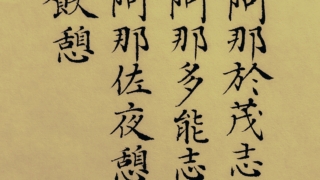 阿那於茂志
阿那多能志
阿那佐夜憩
飫憩